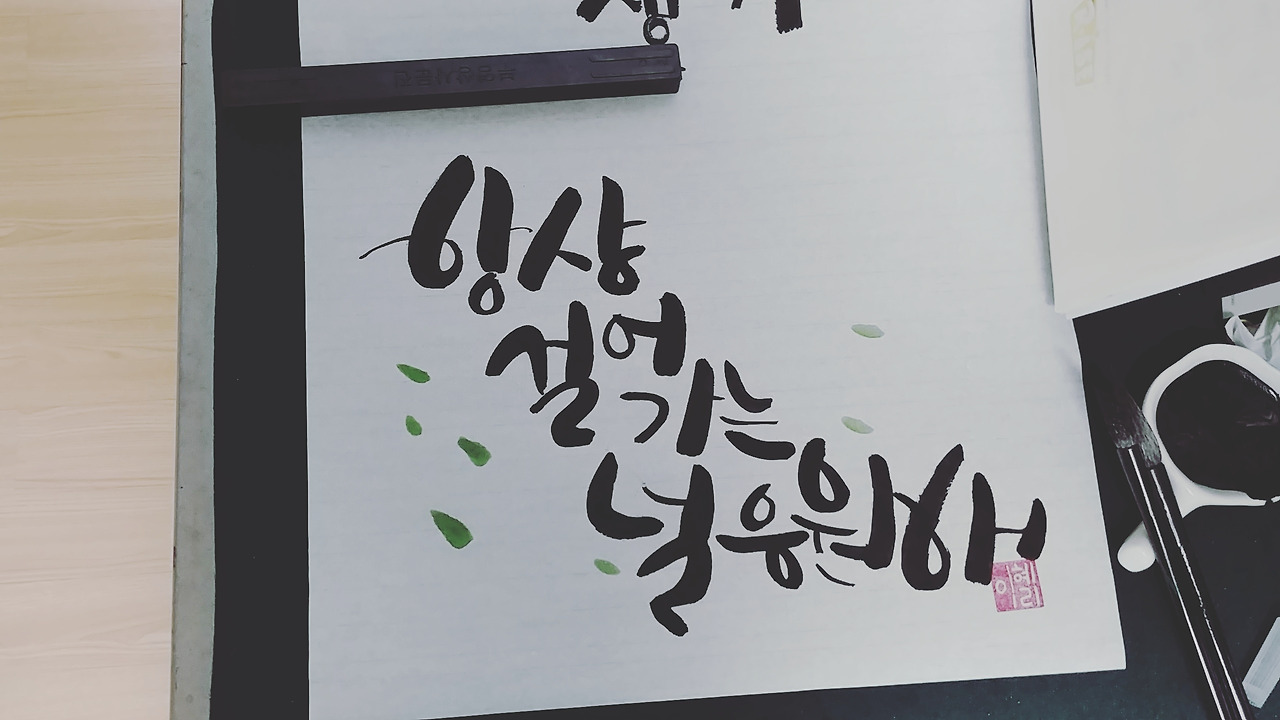 항상
걸어
가는
널 응원해